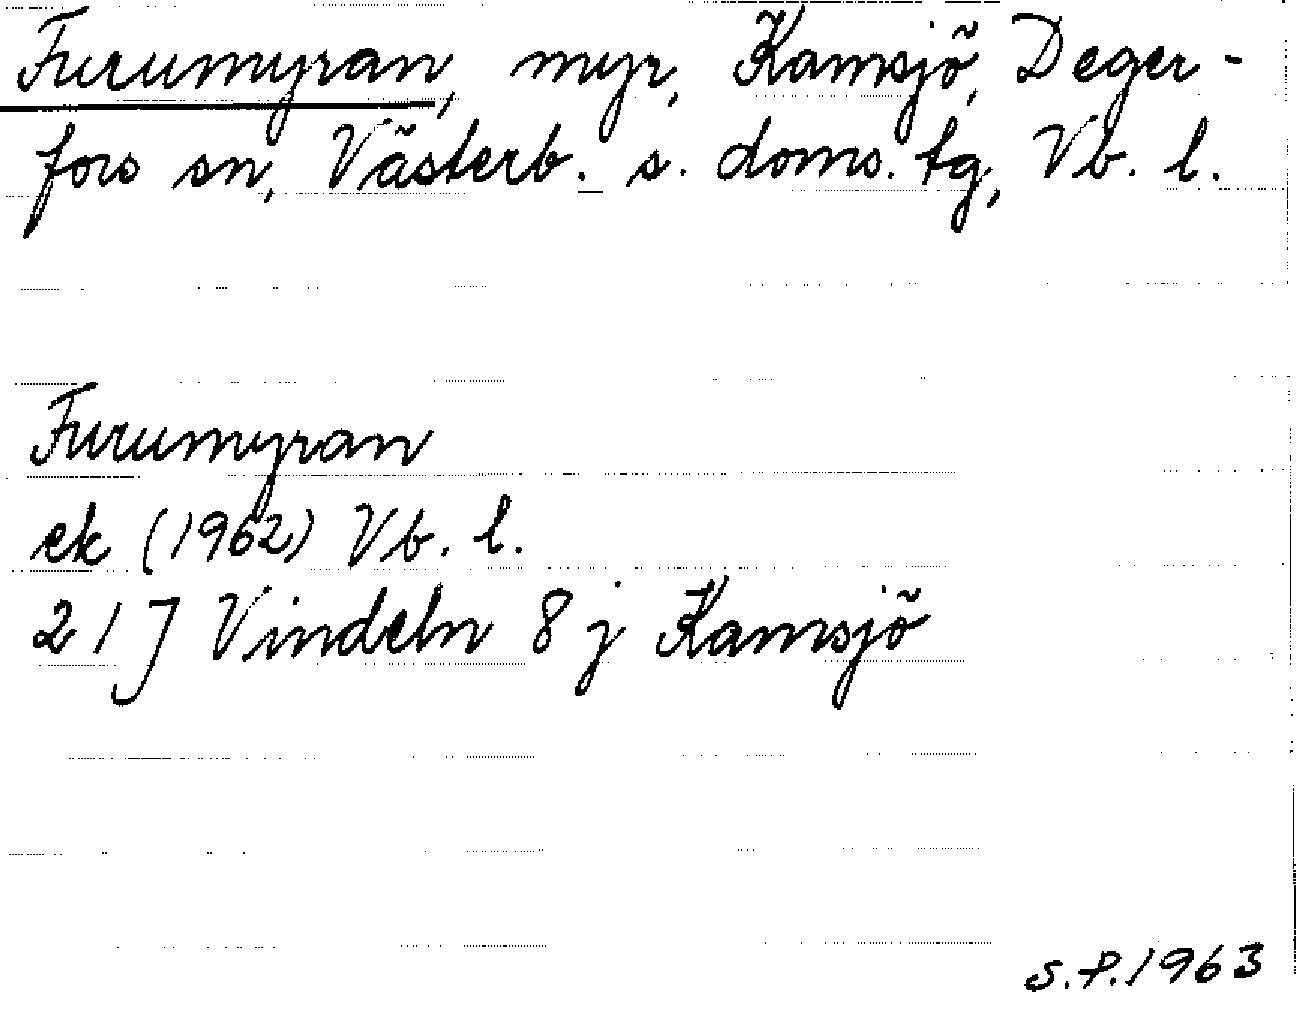 Furumyran, myr, Kamsjö, Deger-
fors sn, Västerb. s. doms. tg, Vb. l.
Furumyran
ek (1962) Vb. l.
21 J Vindeln 8 j Kamsjö
S.P. 1963